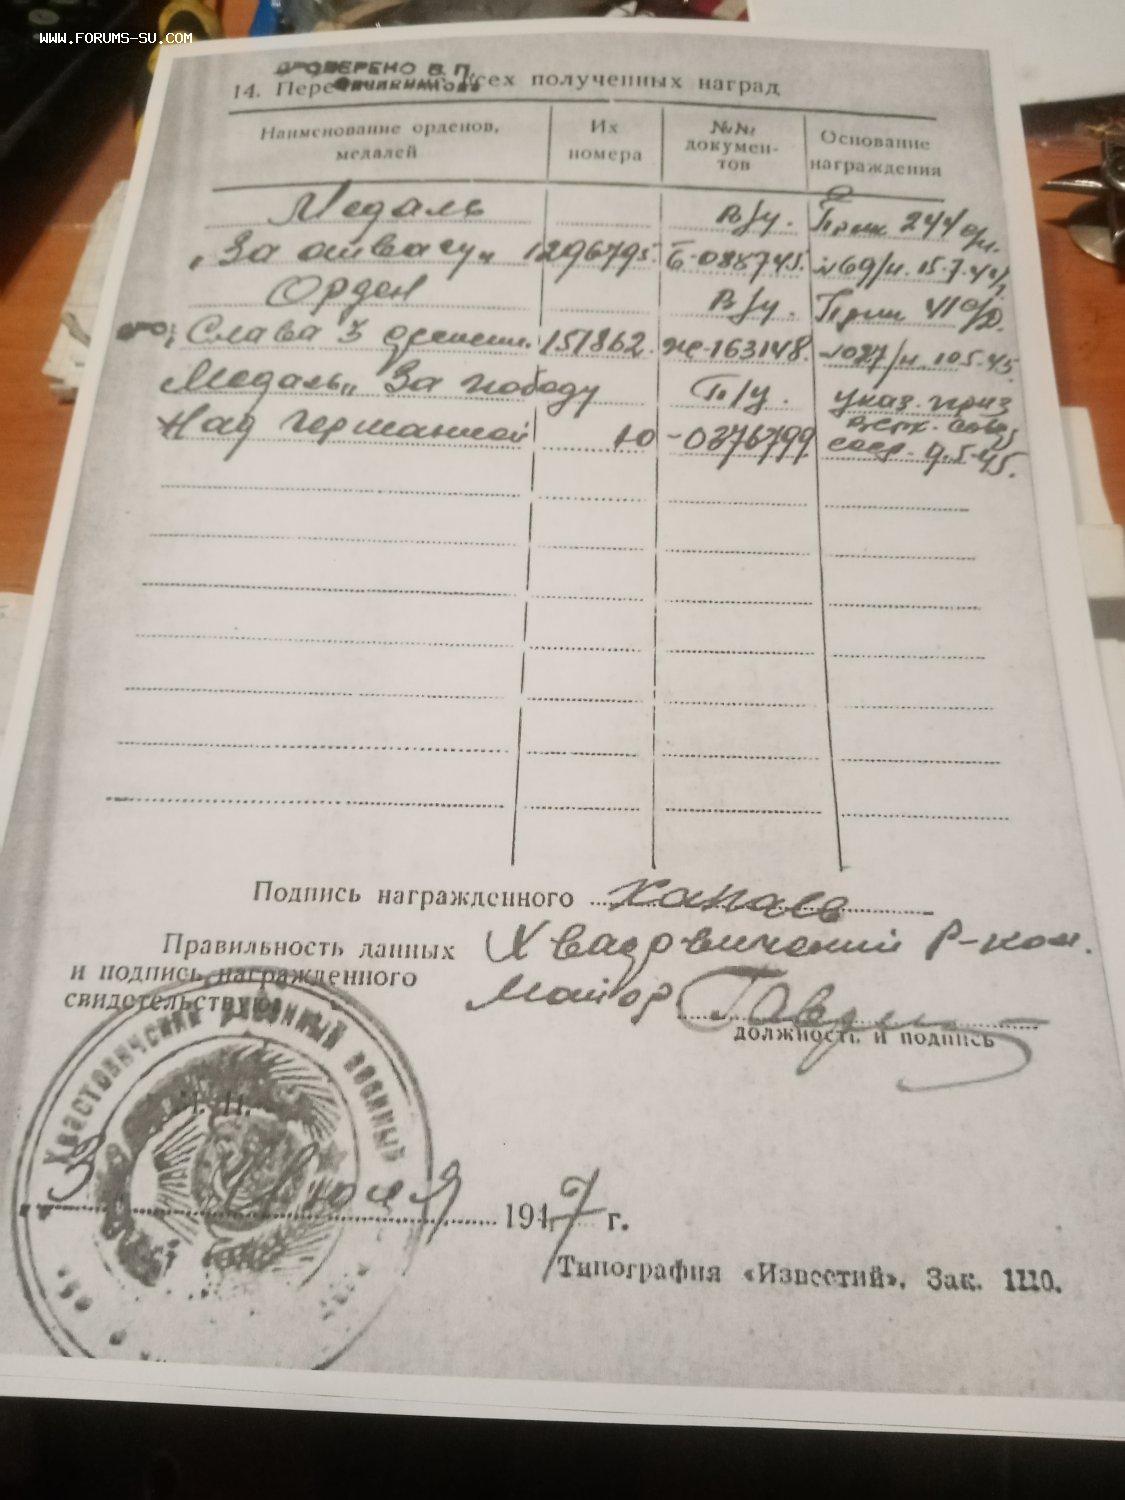 WWW.FORUMS-SU.COM
ПРОВЕРЕНО В. П.
14. всех полученных наград
Наименование орденов, медалей
Их номера
№№ докумен-тов
Основание награждения
Медаль В/у. Прик 244
„За отвагу“ 1296795. Б-088745. №69/н. 15.7.44
Орден В/у. Прик
Слава 3 151862. Ж-163148. №027/н. 10.5.45
Медаль „За победу П/у. указ. през
Над германией Ю -0376799 Верх. Сов.
ссср. 9.5.45.
Подпись награжденного Ханаев
Правильность данных
и подпись награжденного
свидетельствую
Хвастовичский Р-ком.
Майор
должность и подпись
Хвастовичский районный военный
М. П.
3 Июля 1947 г.
Типография «Известий». Зак. 1110.